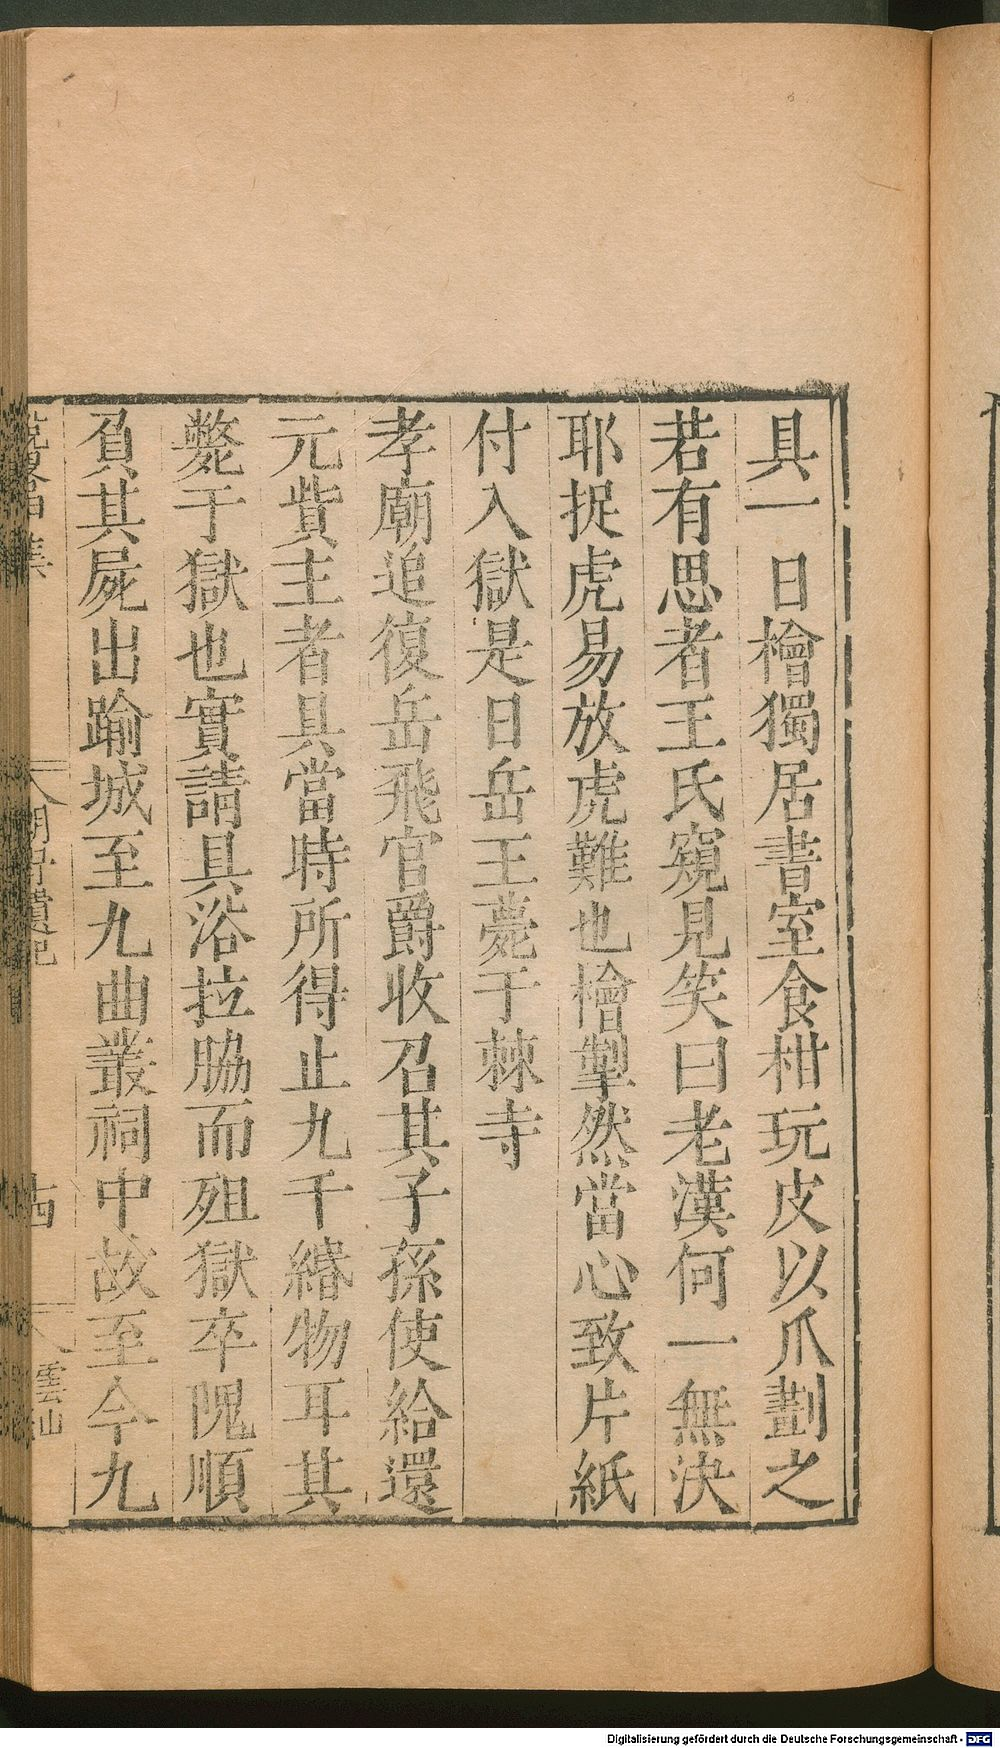 具一日檜獨居書室食柑玩皮以爪劃之
若有思者王氏窺見笑曰老漢何一無決
耶捉虎易放虎難也檜掣然當心致片紙
付入獄是日岳王薨于棘寺
孝廟追復岳飛官爵收召其子孫使給還
元貲主者具當時所得止九千緡物耳其
斃于獄也實請具浴拉脇而殂獄卒隗順
負其屍出踰城至九曲叢祠中故至今九
雲仙
Digitalisierung gefördert durch die Deutsche Forschungsgemeinschaft - DFG